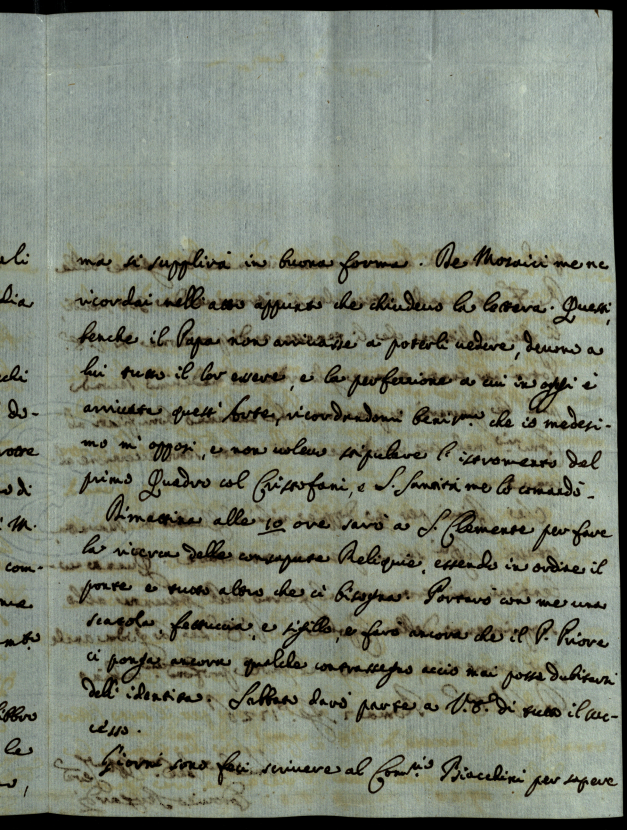 ma si supplirà in buona forma. De Mosaici me ne
ricordai nell'atto appunto che chiudevo la lettera. Questi,
benche il Papa non arrivasse a poterli vedere, devono a
lui tutto il lor essere, e la perfezzione a cui in oggi è
arrivata questa sorte, ricordandomi beniss.mo che io medesi-
mo mi opposi, e non volevo stipulare l'istromento del
primo Quadro col Cristofani, e S. Santità me lo comandò.
Dimattina alle 10 ore sarò a S. Clemente per fare
la ricerca delle consapute Reliquie, essendo in ordine il
ponte e tutto altro che ci bisogna. Portarò con me una
scatola fettuccia, e sigillo, e farò ancora che il P. Priore
ci ponga ancora qualche contrassegno acciò mai possa dubitarsi
dell'identità. Sabbato darò parte a V.S. di tutto il suc-
cesso.
Giorni sono feci scrivere al per sapere
ali
chi
do-
di
M.
com-
le